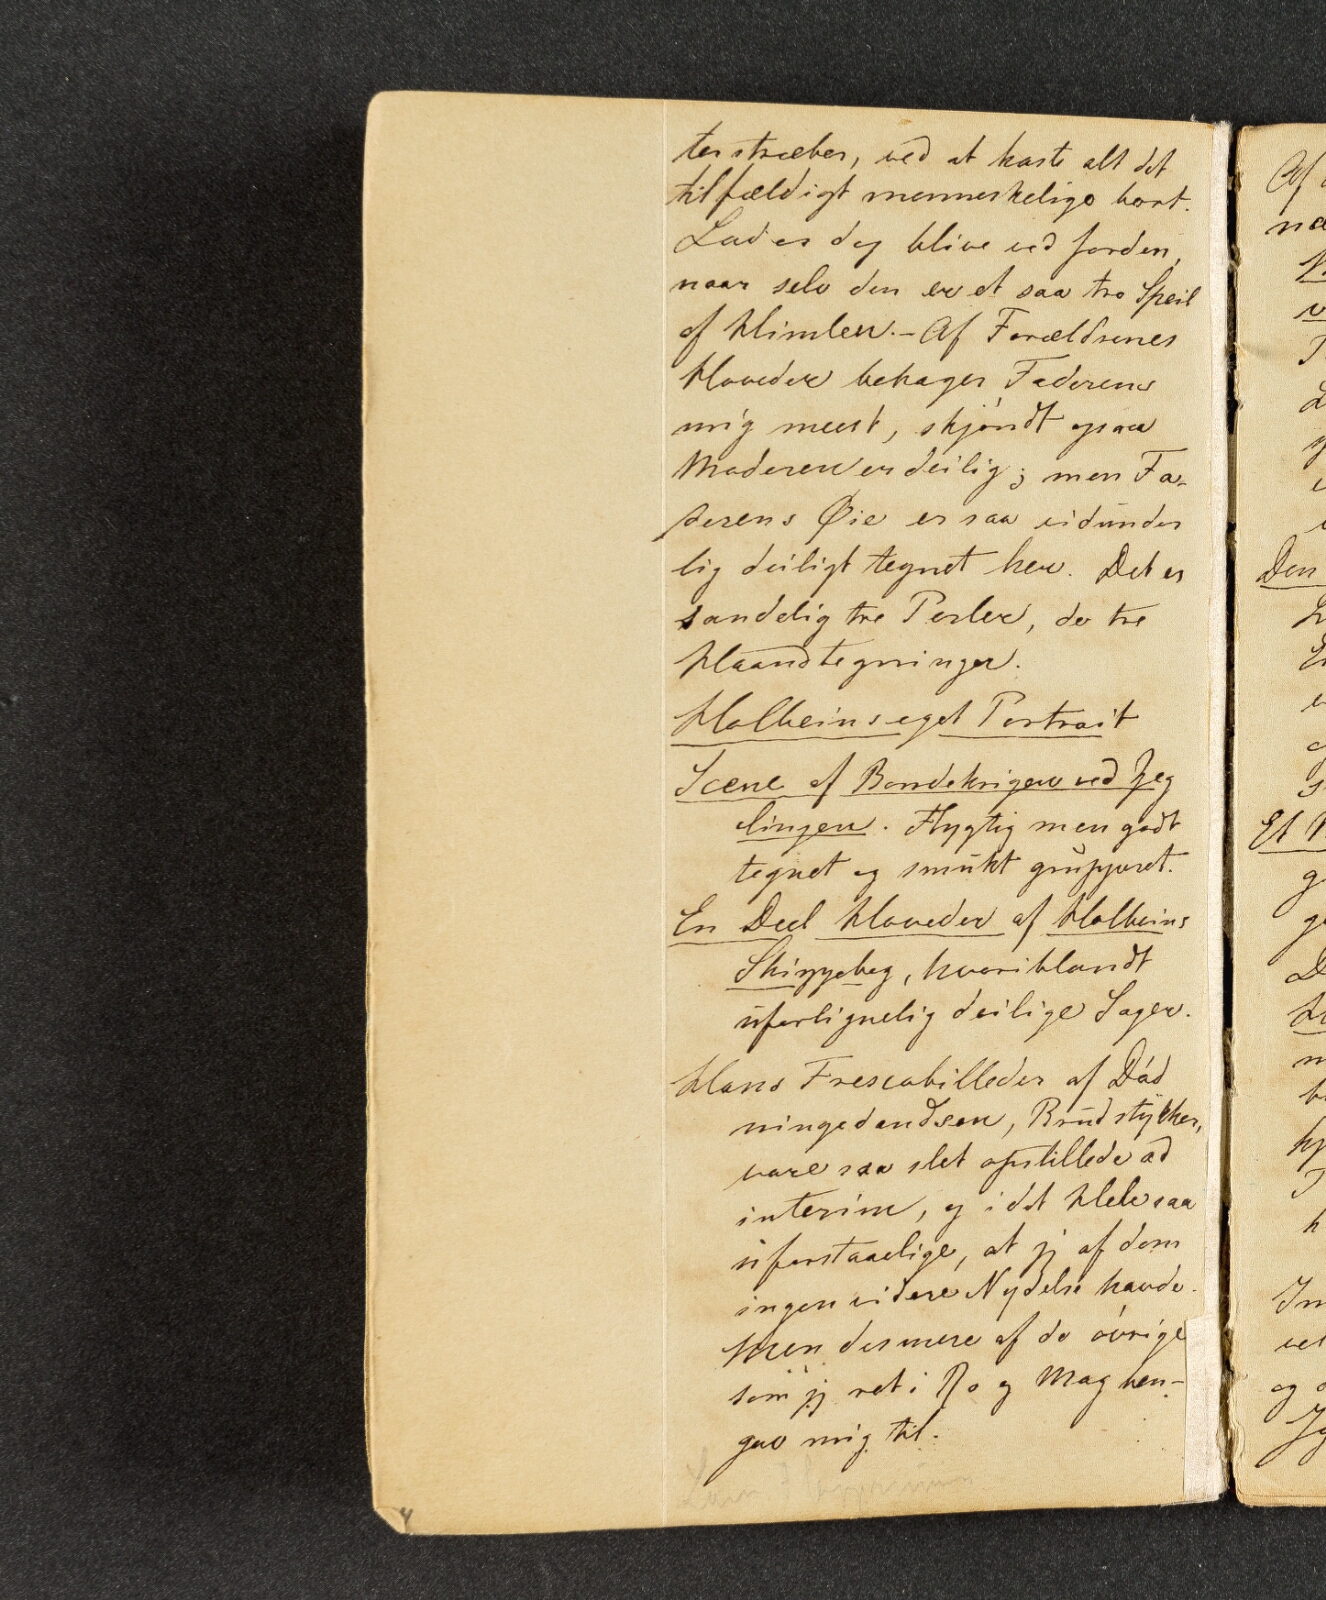 terstræber, ved at kaste alt det
tilfældigt menneskelige bort.
Lad os dog blive ved Jorden,
naar selv den er et saa tro Speil
af Himlen. – Af Forældrenes
Hoveder behager Faderens
mig meest, skjøndt ogsaa
Moderen er deilig; men Fa-
derens Øie er saa vidunder
lig deiligt tegnet her. Det er
sandelig tre Perler, de tre
Haandtegninger.
Holbeins eget Portrait
Scene af Bondekrigen ved Zeg
lingen. Flygtig men godt
tegnet og smukt grupperet.
En Deel Hoveder af Holbeins
Skizzebog, hvoriblandt
uforlignelig deilige Sager.
Hans Frescobilleder af Död
ningedandsen, Brudstykker,
vare saa slet opstillede ad
interim, og i det Hele saa
uforstaaelige, at jeg af dem
ingen videre Nydelse havde.
Men desmere af de övrige
som jeg ret i Ro og Mag hen-
gav mig til.